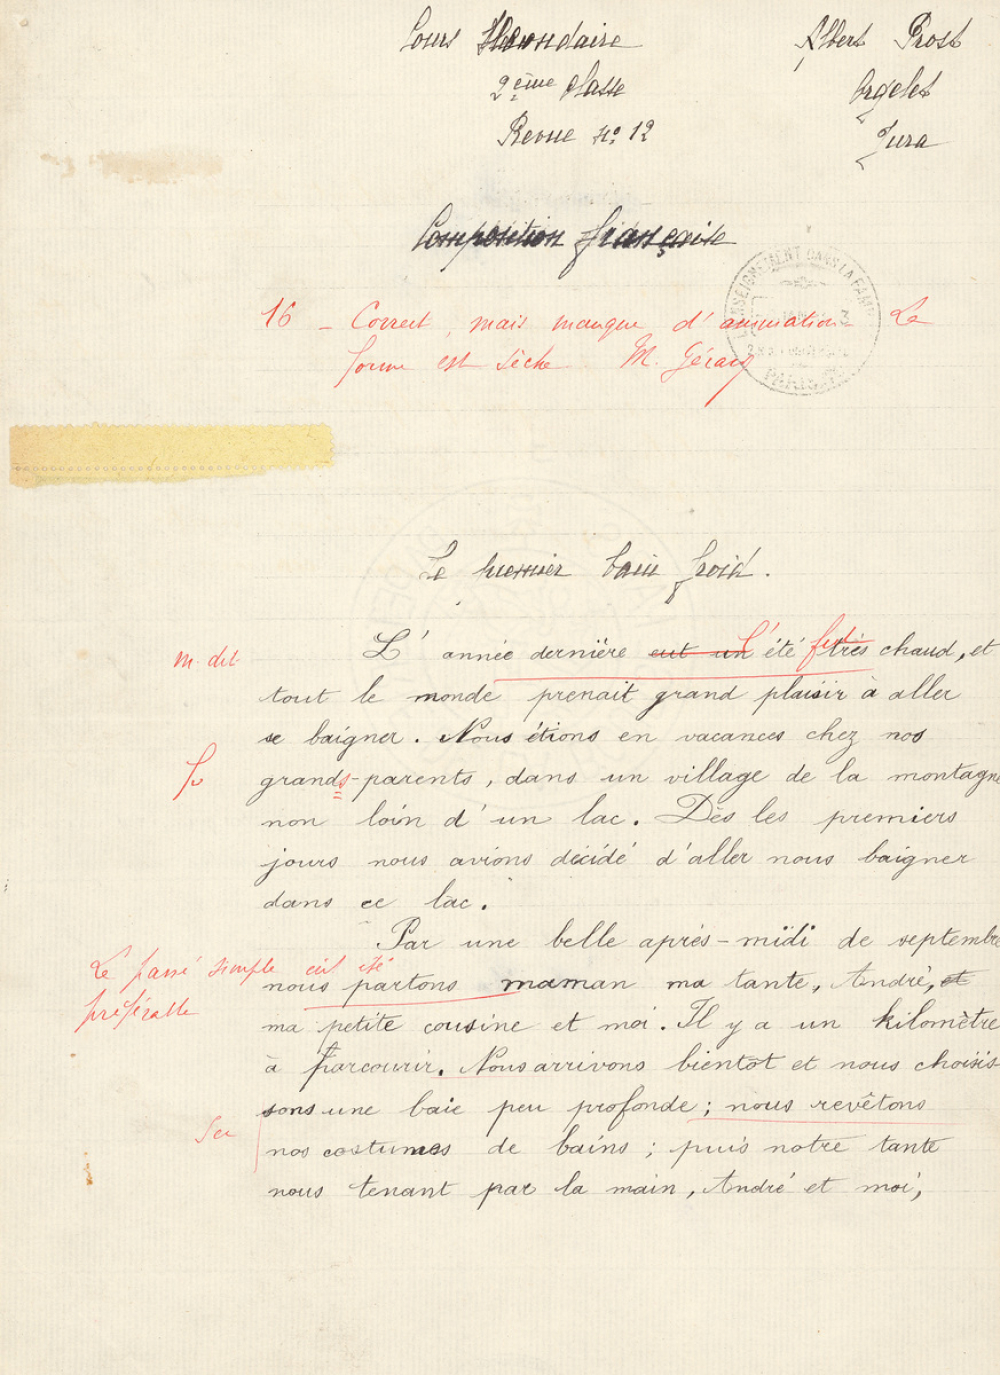 Cours Secondaire
Albert Prost
2ème Classe
Orgelet
Revue No 12
Jura
Composition française
16 - Correct, mais manque d'animation. La
forme est sèche. M. Gérard
ENSEIGNEMENT DANS LA FAMI
PARIS
Le premier bain froid.
m. dit
L'année dernière eut un l'été fut très chaud, et
tout le monde prenait grand plaisir à aller
se baigner. Nous étions en vacances chez nos
grands-parents, dans un village de la montagne
non loin d'un lac. Dès les premiers
jours nous avions décidé d'aller nous baigner
dans ce lac.
Par une belle après-midi de septembre
Le passé simple eût été
préférable
nous partons maman ma tante, André, et
ma petite cousine et moi. Il y a un kilomètre
à parcourir. Nous arrivons bientôt et nous choisis-
sons une baie peu profonde ; nous revêtons
Sec
nos costumes de bains ; puis notre tante
nous tenant par la main, André et moi,